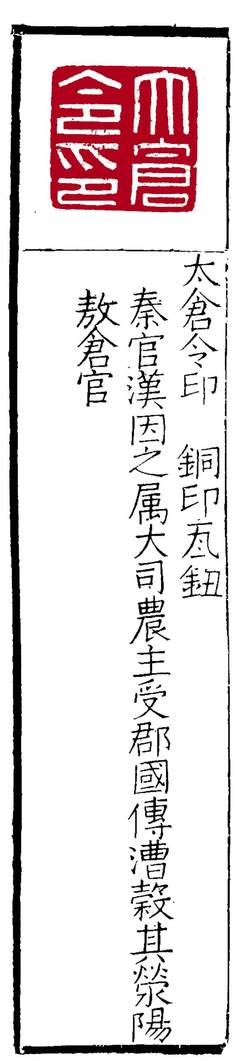 大倉令印
太倉令印　銅印瓦鈕
秦官漢因之属大司農主受郡國傳漕穀其滎陽
敖倉官